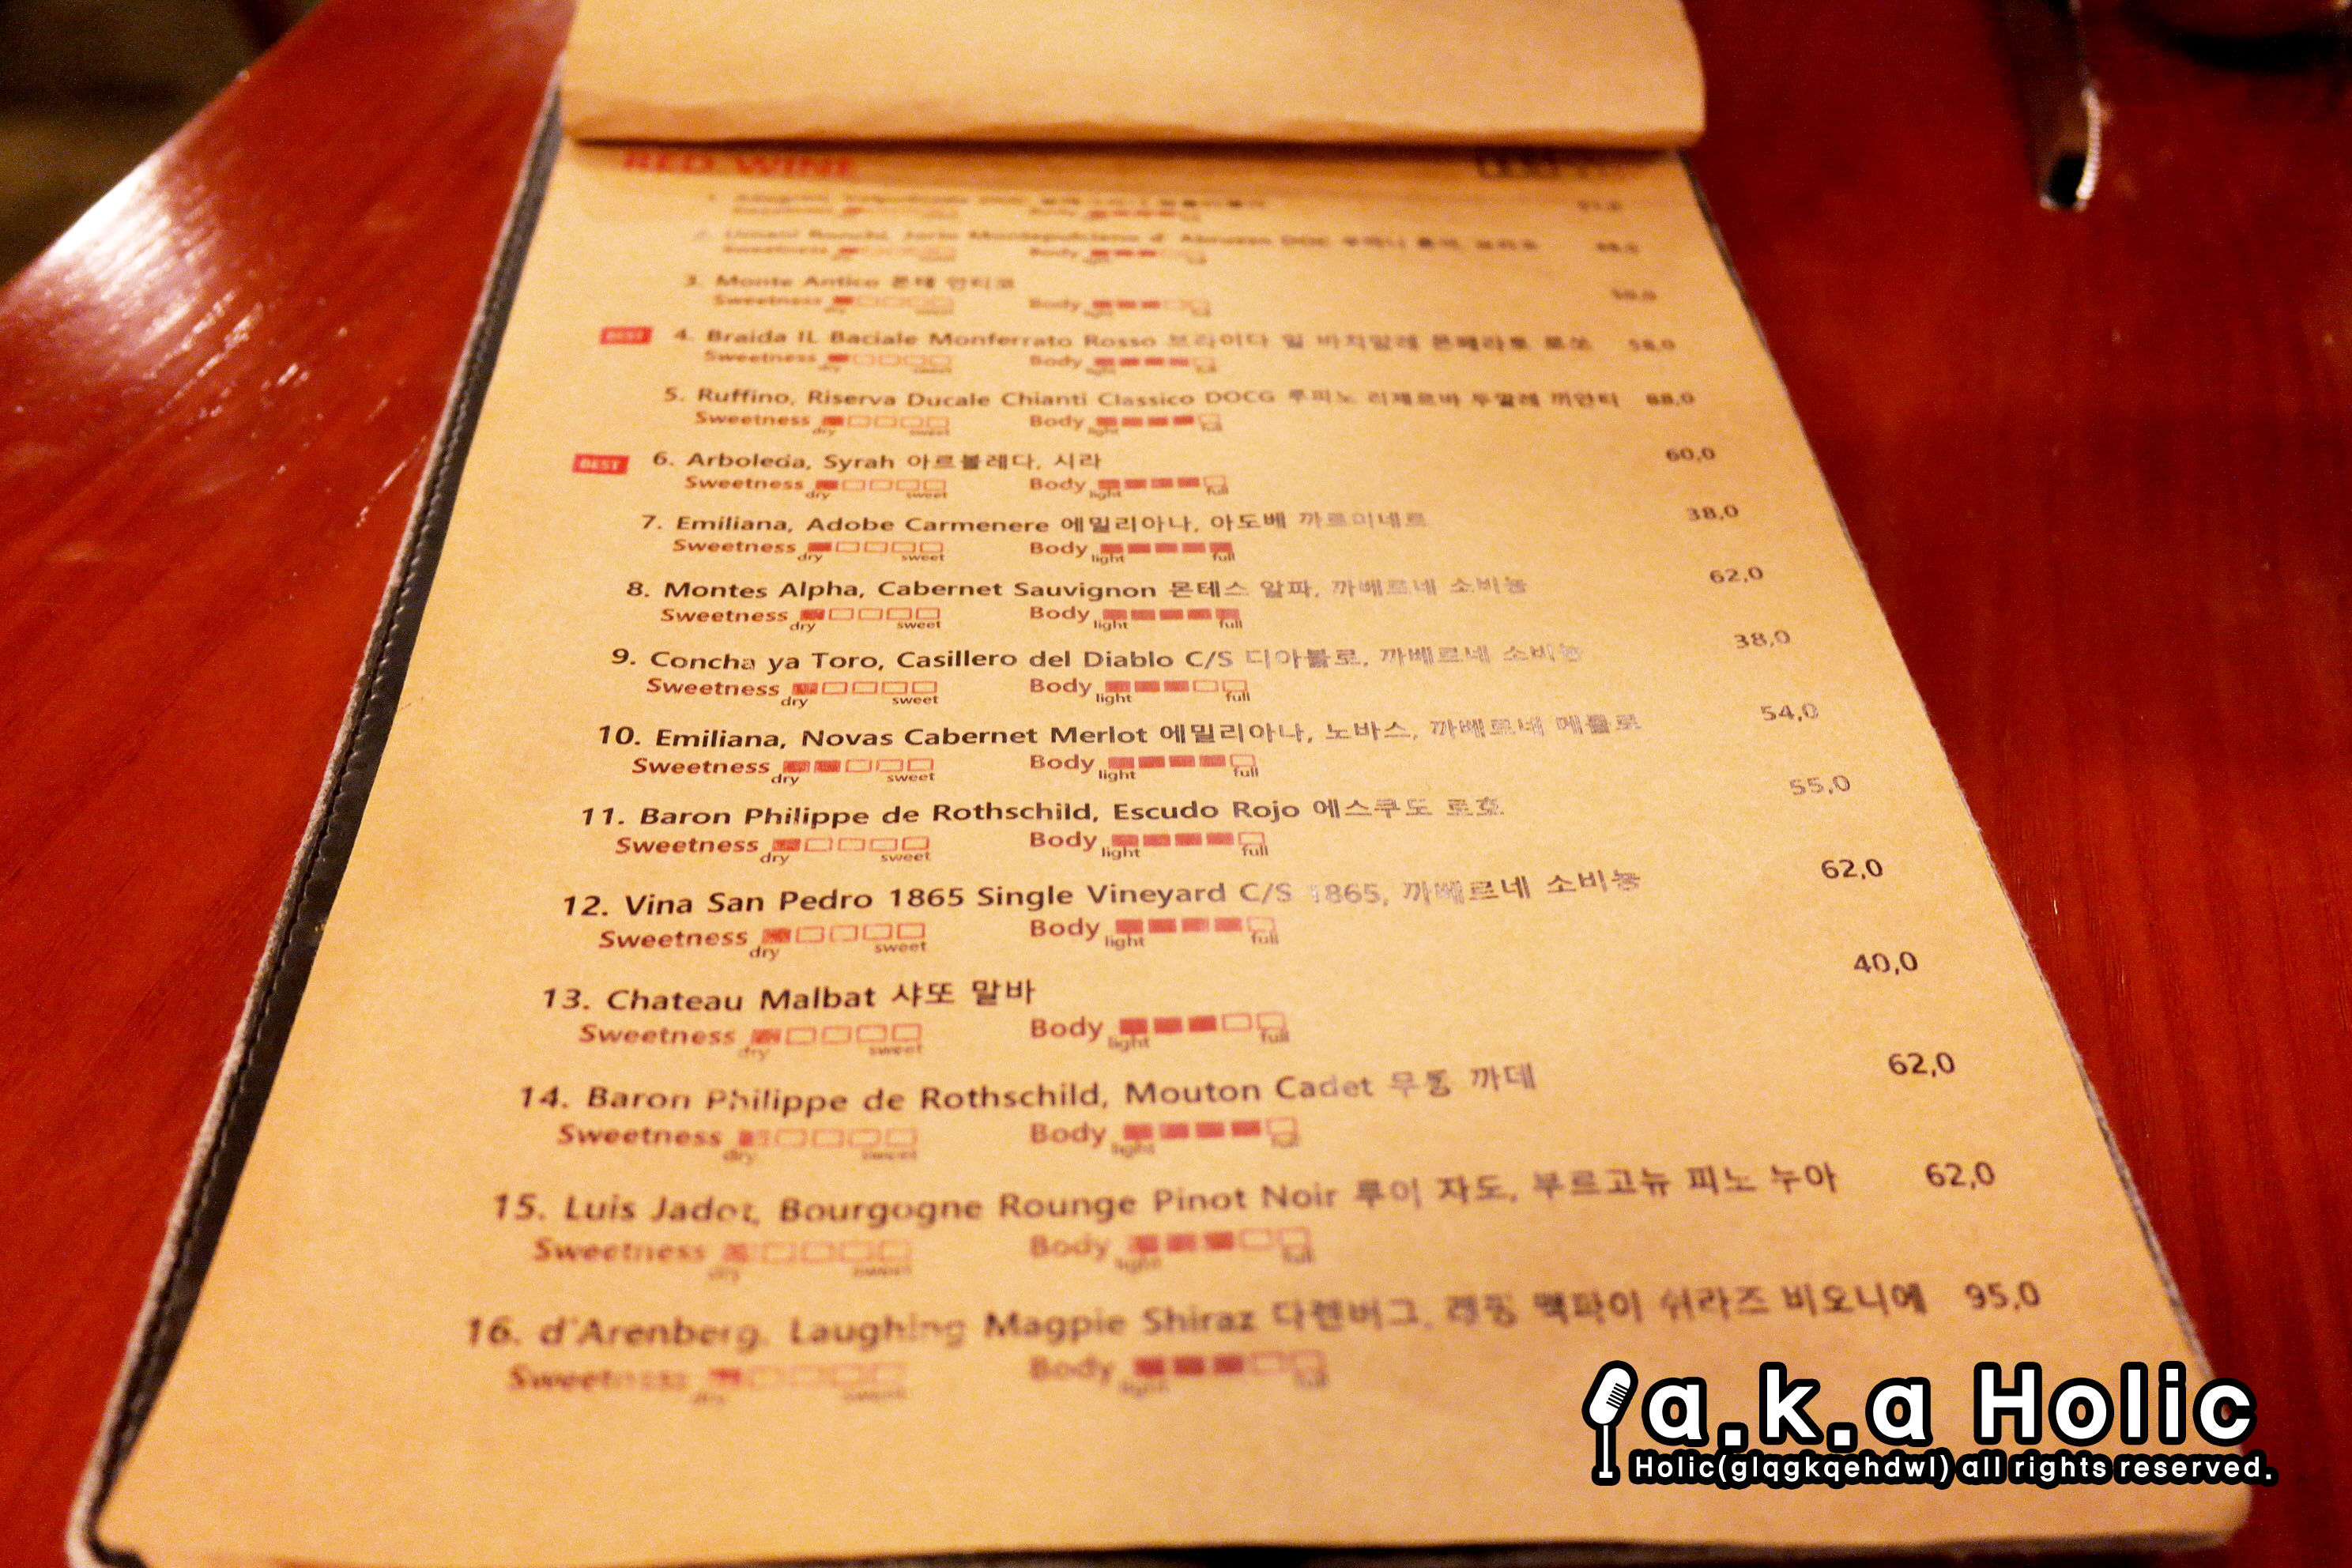 RED WINE
3. Monte Antico 몬테 안티코
Sweetness Body
light
BEST 4. Braida IL Baciale Monferrato Rosso 브라이다 일 바치알레 몬페라토 로쏘 58,0
Sweetness dry sweet Body light full
5. Ruffino, Riserva Ducale Chianti Classico DOCG 루피노 리제르바 두깔레 끼안티
Sweetness dry sweet Body light full
BEST 6. Arboleda, Syrah 아르볼레다, 시라 60,0
Sweetness dry sweet Body light full
7. Emiliana, Adobe Carmenere 에밀리아나, 아도베 까르미네르 38,0
Sweetness dry sweet Body light full
8. Montes Alpha, Cabernet Sauvignon 몬테스 알파, 까베르네 소비뇽 62,0
Sweetness dry sweet Body light full
9. Concha ya Toro, Casillero del Diablo C/S 디아블로, 까베르네 소비뇽 38,0
Sweetness dry sweet Body light full
10. Emiliana, Novas Cabernet Merlot 에밀리아나, 노바스, 까베르네 메를로 54,0
Sweetness dry sweet Body light full
11. Baron Philippe de Rothschild, Escudo Rojo 에스쿠도 로호 55,0
Sweetness dry sweet Body light full
12. Vina San Pedro 1865 Single Vineyard C/S 1865, 까베르네 소비뇽 62,0
Sweetness dry sweet Body light full
13. Chateau Malbat 샤또 말바 40,0
Sweetness dry sweet Body light full
14. Baron Philippe de Rothschild, Mouton Cadet 무똥 까데 62,0
Sweetness dry sweet Body light full
15. Luis Jadot, Bourgogne Rounge Pinot Noir 루이 자도, 부르고뉴 피노 누아 62,0
Sweetness dry sweet Body light full
16. d'Arenberg, Laughing Magpie Shiraz 다렌버그, 래핑 맥파이 쉬라즈 비오니에 95,0
Sweetness dry sweet Body light full
a.k.a Holic
Holic(glqgkqehdwl) all rights reserved.